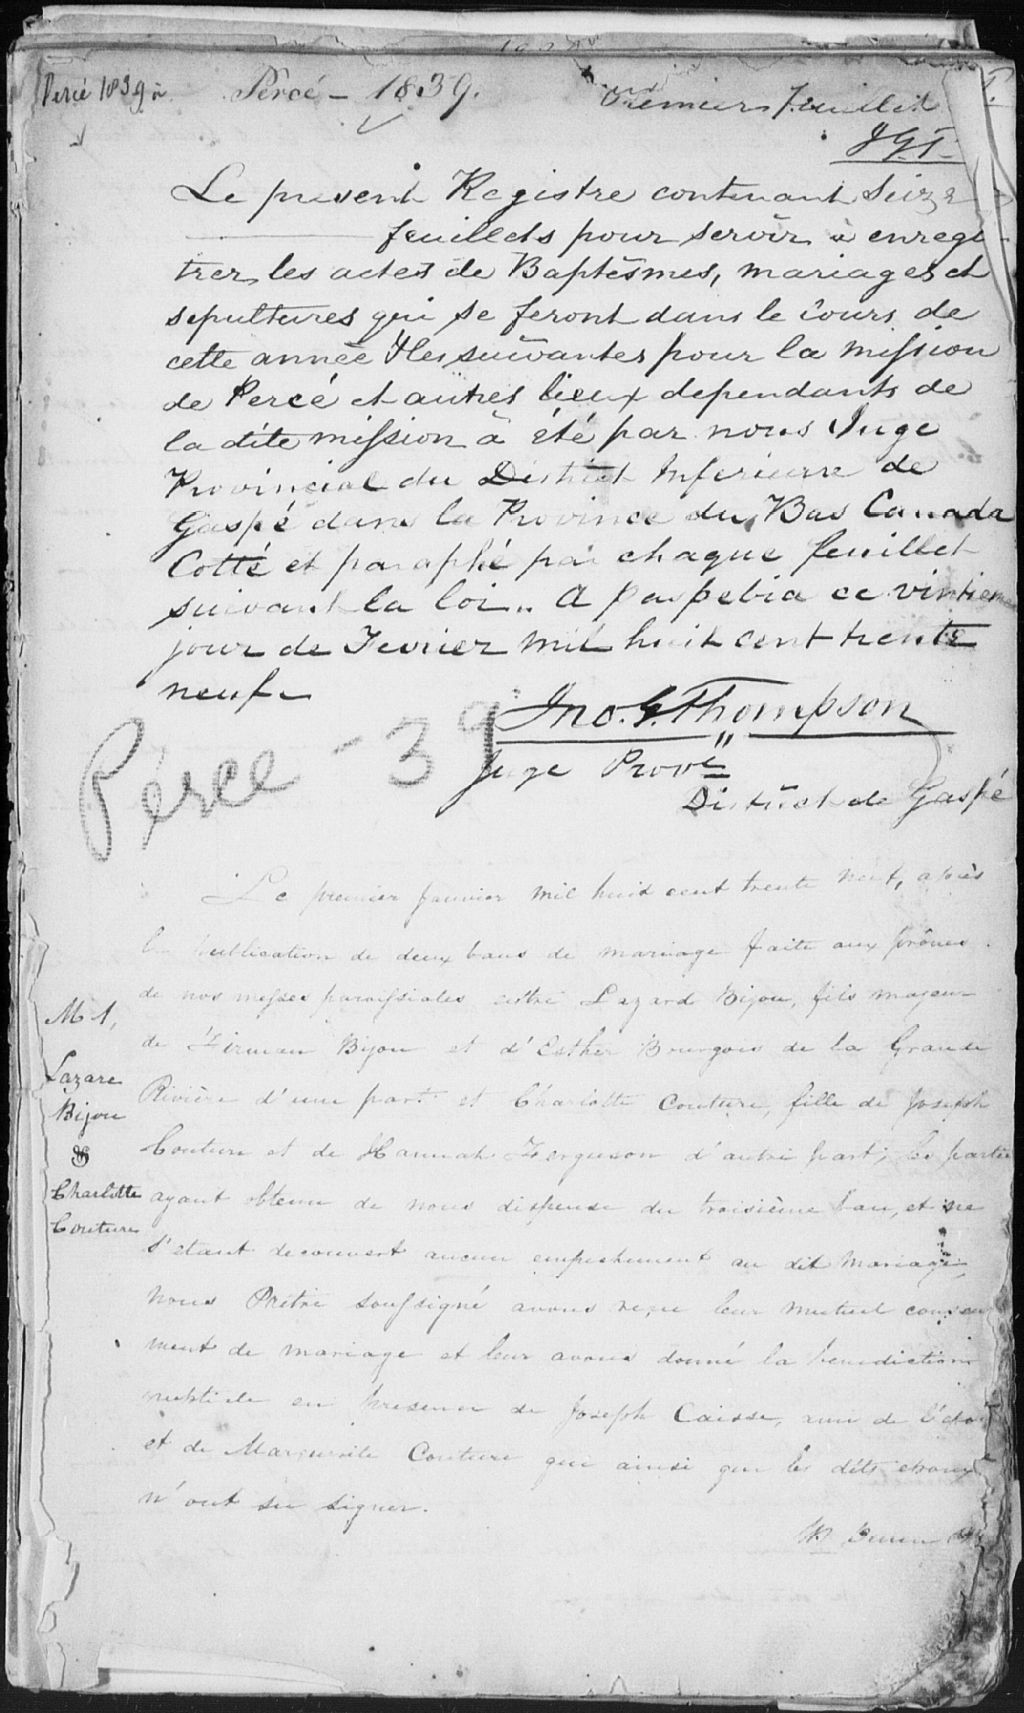 Percé 1839
Percé – 1839.
Premier feuillet
JGT
Le present Registre contenant Seize
feuillets pour servir a enregi-
trer les actes de Baptêsmes, mariages et
sepultures qui se feront dans le cours de
cette année & les suivantes pour la mission
de Percé et autres lieux dependants de
la dite mission à été par nous Juge
Provincial du District Inferieure de
Gaspé dans la Province du Bas Canada
Cotté et paraphé par chaque feuillet
suivant la loi.. A Paspebia ce vintieme
jour de Fevrier mil huit cent trente
neuf
Jno. G. Thompson
Juge Provl
District de Gaspé
Percé - 39
Le premier janvier mil huit cent trente neuf, après
la publication de deux bans de mariage faite aux prônes
de nos messes paroissiales entre Lazard Bijou, fils majeur
de Firman Bijou et d'Esther Bourgois de la Grande
Rivière d'une part et Charlotte Couture, fille de Joseph
Couture et de Hannah Ferguson d'autre part; les parties
ayant obtenu de nous dispense du troisième ban, et ne
s'etant decouvert aucun empechement au dit mariage,
nous Prêtre soussigné avons reçu leur mutuel consen
ment de mariage et leur avons donné la benediction
nuptiale en presence de Joseph Caisse, ami de l'
et de Marguerite Couture qui ainsi que les dits epoux
n'ont su signer.
M 1,
Lazare
Bijou
&
Charlotte
Couture